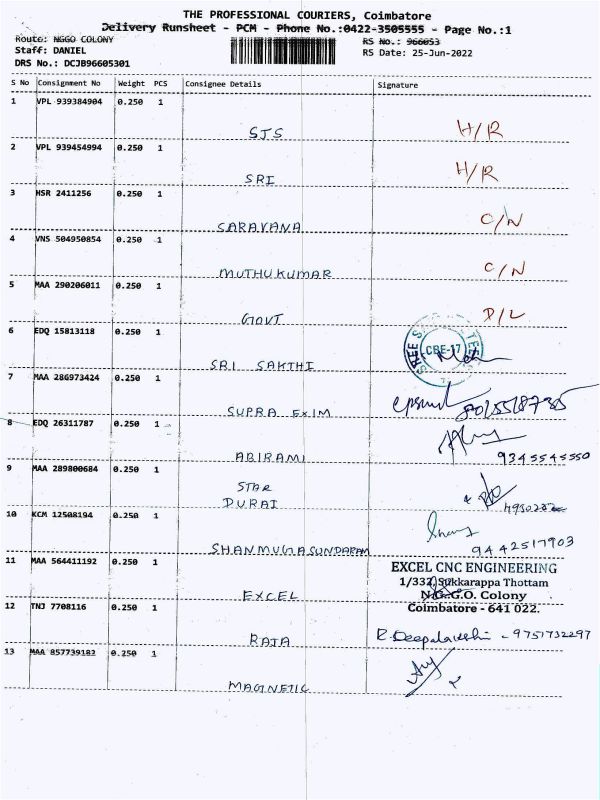 THE PROFESSIONAL COURIERS, Coimbatore
Delivery Runsheet - PCM - Phone No.:0422-3505555 - Page No.:1
Route: NGGO COLONY
RS No.: 966053
Staff: DANIEL
RS Date: 25-Jun-2022
DRS No.: DCJB96605301
S No Consignment No Weight PCS Consignee Details Signature
1 VPL 939384904 0.250 1
SJS H/R
2 VPL 939454994 0.250 1
SRI H/R
3 HSR 2411256 0.250 1
SARAVANA C/N
4 VNS 504950854 0.250 1
MUTHUKUMAR C/N
5 MAA 290206011 0.250 1
GOVT D/L
6 EDQ 15813118 0.250 1
CBE-17
SRI SAKTHI
7 MAA 286973424 0.250 1
SUPRA EXIM
8 EDQ 26311787 0.250 1
ABIRAMI 9345545550
9 MAA 289800684 0.250 1
STAR
DURAI
10 KCM 12508194 0.250 1
SHANMUGASUNDARAM 9442517903
11 MAA 564411192 0.250 1
EXCEL CNC ENGINEERING
1/332, Sukkarappa Thottam
EXCEL N.G.G.O. Colony
Coimbatore - 641 022.
12 TNJ 7708116 0.250 1
RAJA - 9751732297
13 MAA 857739182 0.250 1
MAGNETIC